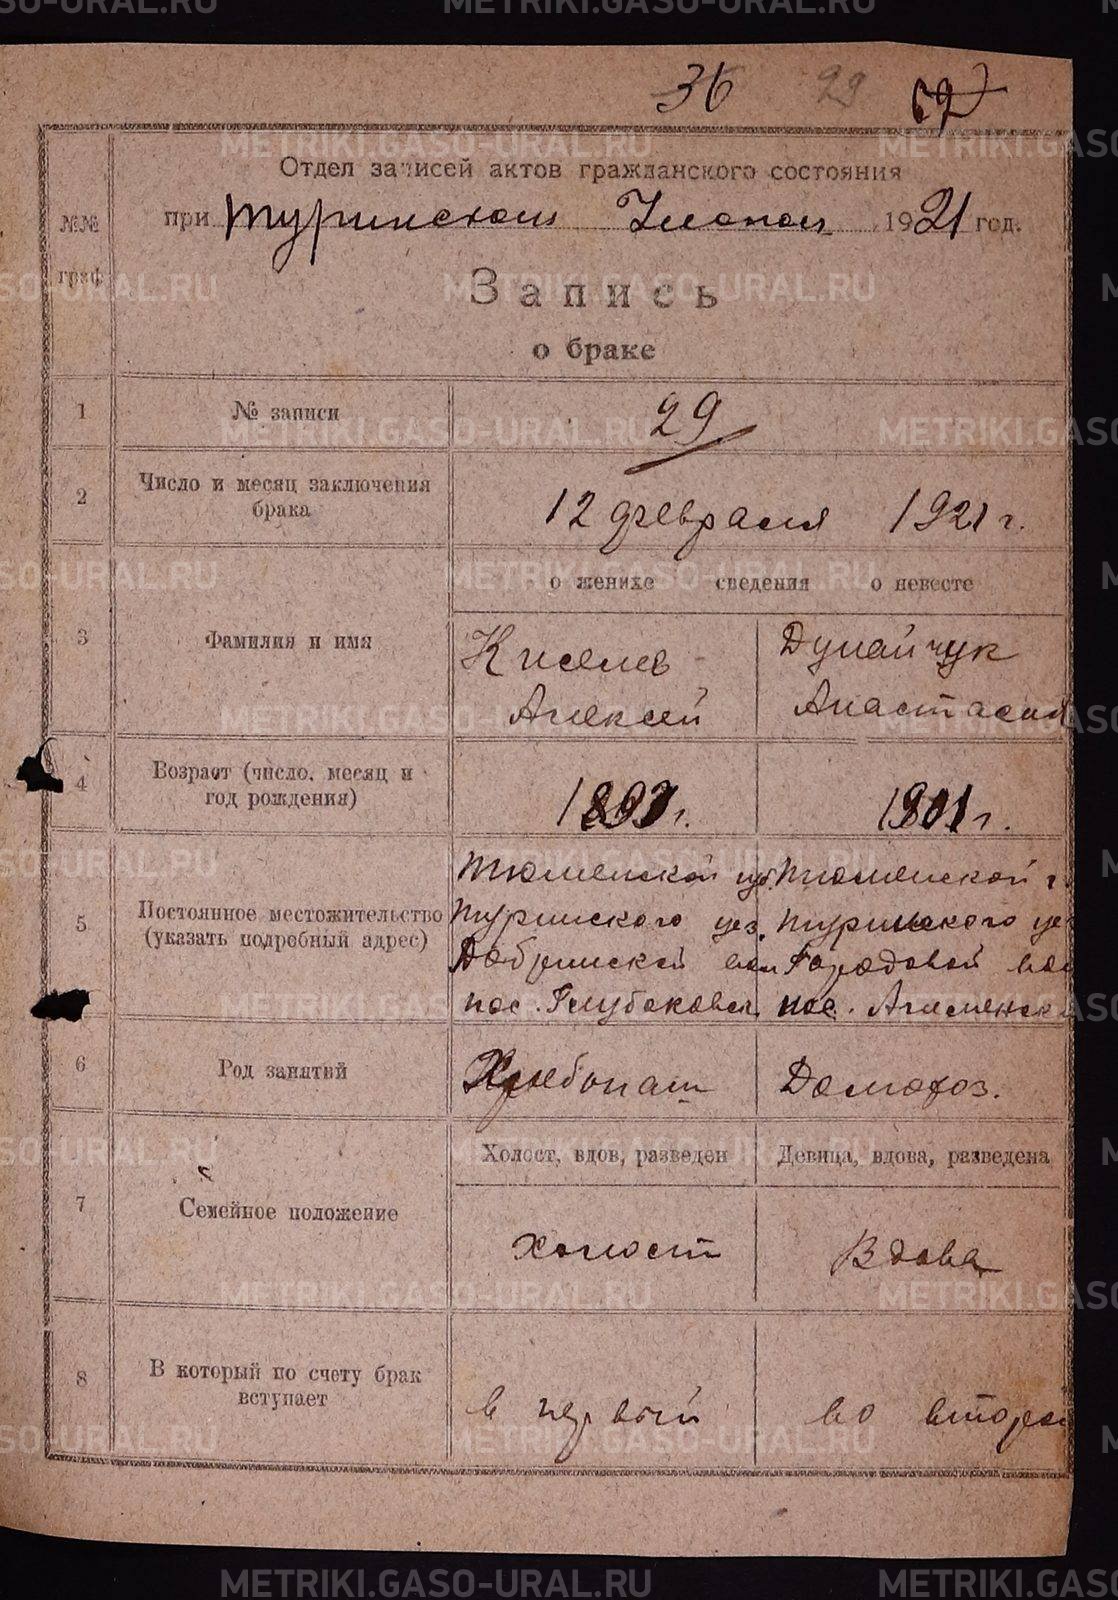 36 29
Отдел записей актов гражданского состояния
при Туринском Исполком 1921 год.
№№ граф
Запись
о браке
1 № записи 29
2 Число и месяц заключения
брака
12 февраля 1921 г.
о женихе сведения о невесте
3 Фамилия и имя
Киселев Дунайчук
Алексей Анастасия
4 Возраст (число, месяц и
год рождения)
1901 г.
5 Постоянное местожительство
(указать подробный адрес)
Тюменской губ. Тюменской г
Туринского уез. Туринского уе
Добринской вол Городовой вол
пос. Глубоковск. пос.
6 Род занятий Хлебопаш Домохоз.
Холост, вдов, разведен Девица, вдова, разведена
7 Семейное положение
холост Вдова
8 В который по счету брак
вступает
в первый во второй
METRIKI.GASO-URAL.RU